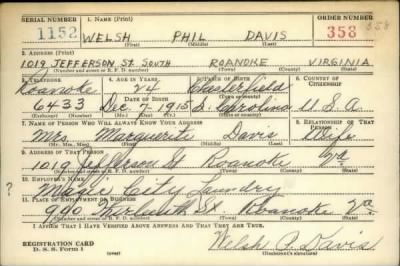 SERIAL NUMBER 1. NAME (Print) ORDER NUMBER
1152 WELSH PHIL DAVIS 358 358
(First) (Middle) (Last)
2. ADDRESS (Print)
1019 JEFFERSON ST. SOUTH ROANOKE VIRGINIA
(Number and street or R. F. D. number) (Town) (County) (State)
3. TELEPHONE 4. AGE IN YEARS 5. PLACE OF BIRTH 6. COUNTRY OF CITIZENSHIP
Roanoke 24 Chesterfield
DATE OF BIRTH
6433 Dec 7, 1915 S. Carolina U.S.A
7. NAME OF PERSON WHO WILL ALWAYS KNOW YOUR ADDRESS 8. RELATIONSHIP OF THAT PERSON
Mrs. Marguerite Davis Wife
(Mr., Mrs., Miss) (First) (Middle) (Last)
9. ADDRESS OF THAT PERSON
1019 Jefferson St Roanoke Va
(Number and street or R. F. D. number) (Town) (County) (State)
10. EMPLOYER'S NAME
? Magic City Laundry
11. PLACE OF EMPLOYMENT OR BUSINESS
Roanoke Va
(Number and street or R. F. D. number) (Town) (County) (State)
I AFFIRM THAT I HAVE VERIFIED ABOVE ANSWERS AND THAT THEY ARE TRUE.
REGISTRATION CARD
D. S. S. Form 1 (over) Welsh P. Davis
(Registrant's signature)